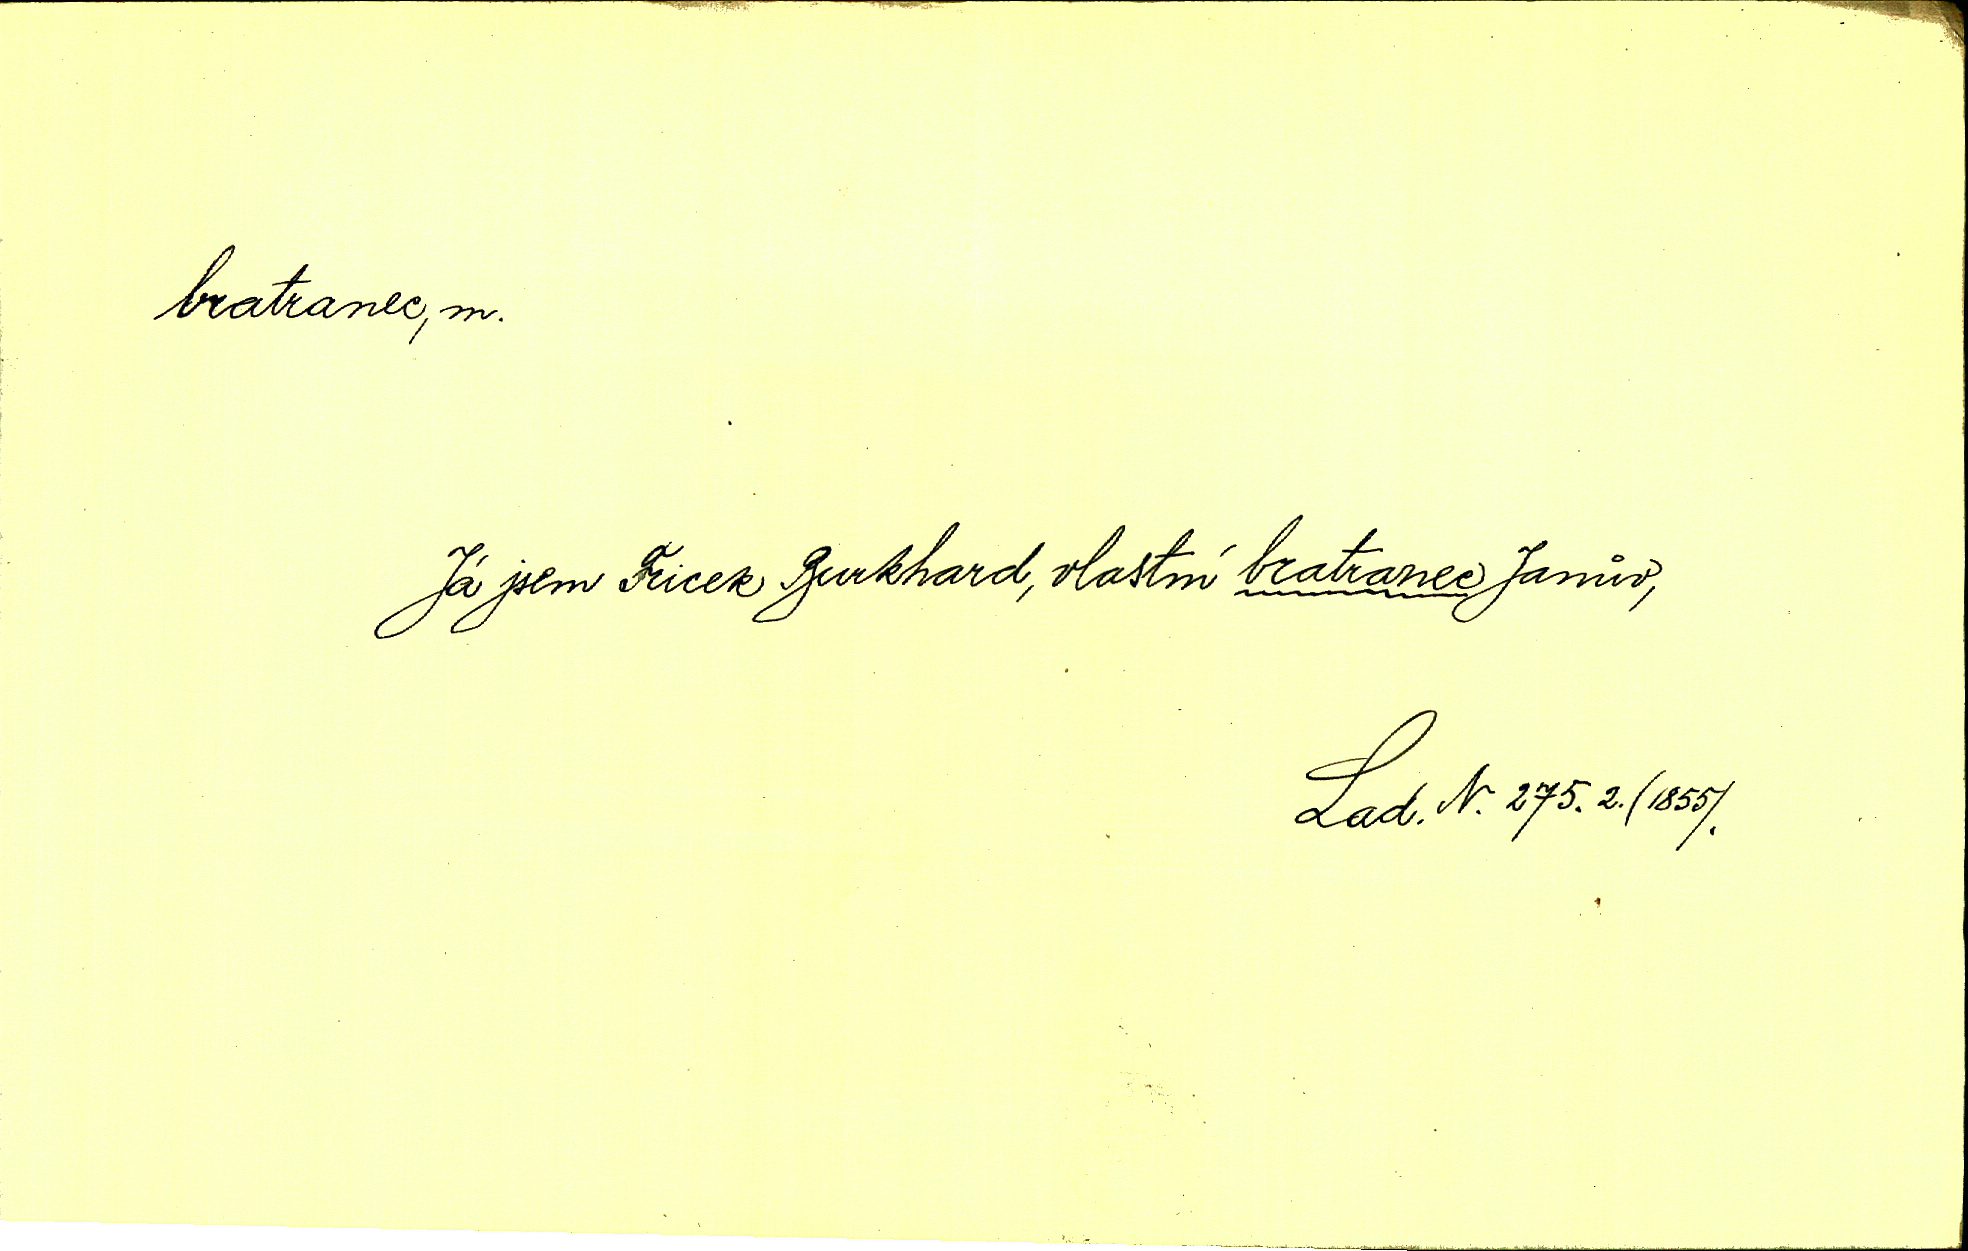 bratranec, m.
Já jsem Fricek Burkhard, vlastní bratranec Janův,
Lad. N. 275. 2. (1855).